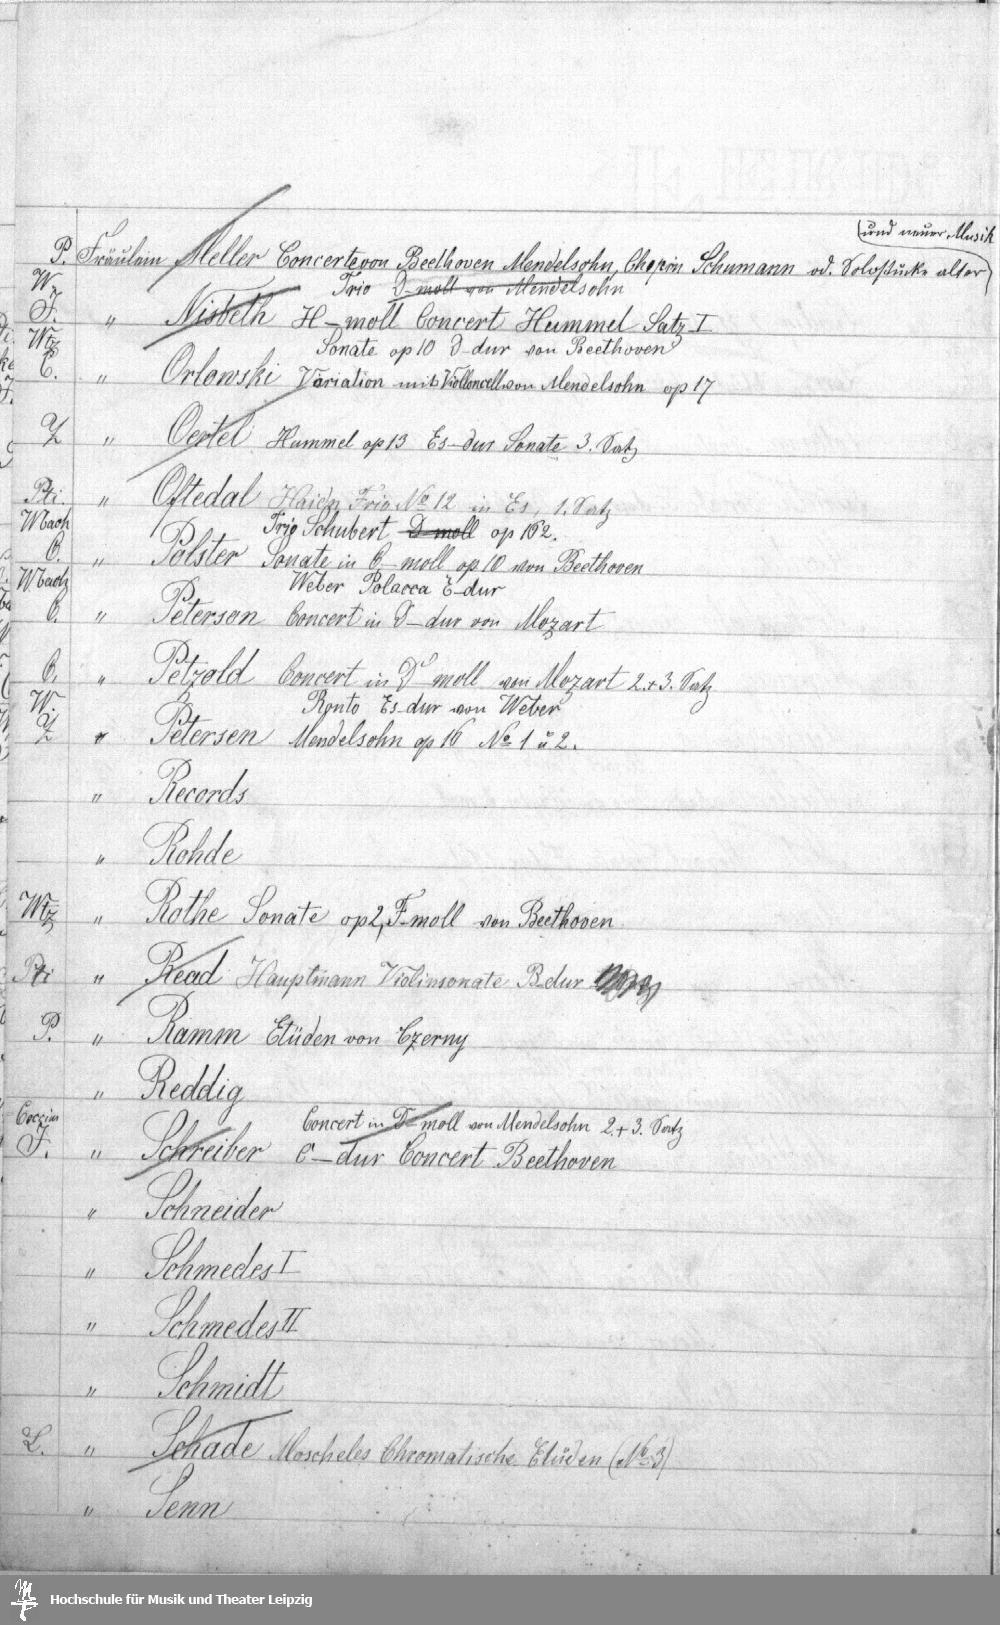 und neuer Musik
P. Fräulein Meller Concerte von Beethoven Mendelsohn, Chopin Schumann od. Solostücke alter
W. Trio D-moll von Mendelsohn
F. " Nisbeth H-moll Concert Hummel Satz I
Wtz Sonate op 10 D-dur von Beethoven
C. " Orlowski Variation mit Violloncell von Mendelsohn op 17
Z " Oertel Hummel op 13 Es-dur Sonate 3. Satz
Pti " Oftedal Haidn Trio No 12 in Es, 1. Satz
Wbach Trio Schubert D moll op 162.
C. " Polster Sonate in C-moll op 10 von Beethoven
W.bach Weber Polacca E-dur
C. " Peterson Concert in D-dur von Mozart
C. " Petzold Concert in D moll von Mozart 2.+3. Satz
W. Ronto Es-dur von Weber
Z " Petersen Mendelsohn op 16 No 1 u 2.
" Records
" Rohde
Wtz " Rothe Sonate op 2, F-moll von Beethoven
Pti " Read Hauptmann Violinsonate B-dur
P. " Ramm Etüden von Czerny
" Reddig
Coccius Concert in D-moll von Mendelsohn 2.+3. Satz
F. " Schreiber C-dur Concert Beethoven
" Schneider
" Schmedes I
" Schmedes II
" Schmidt
L. " Schade Moscheles Chromatische Etüden (No 3)
" Senn
Hochschule für Musik und Theater Leipzig